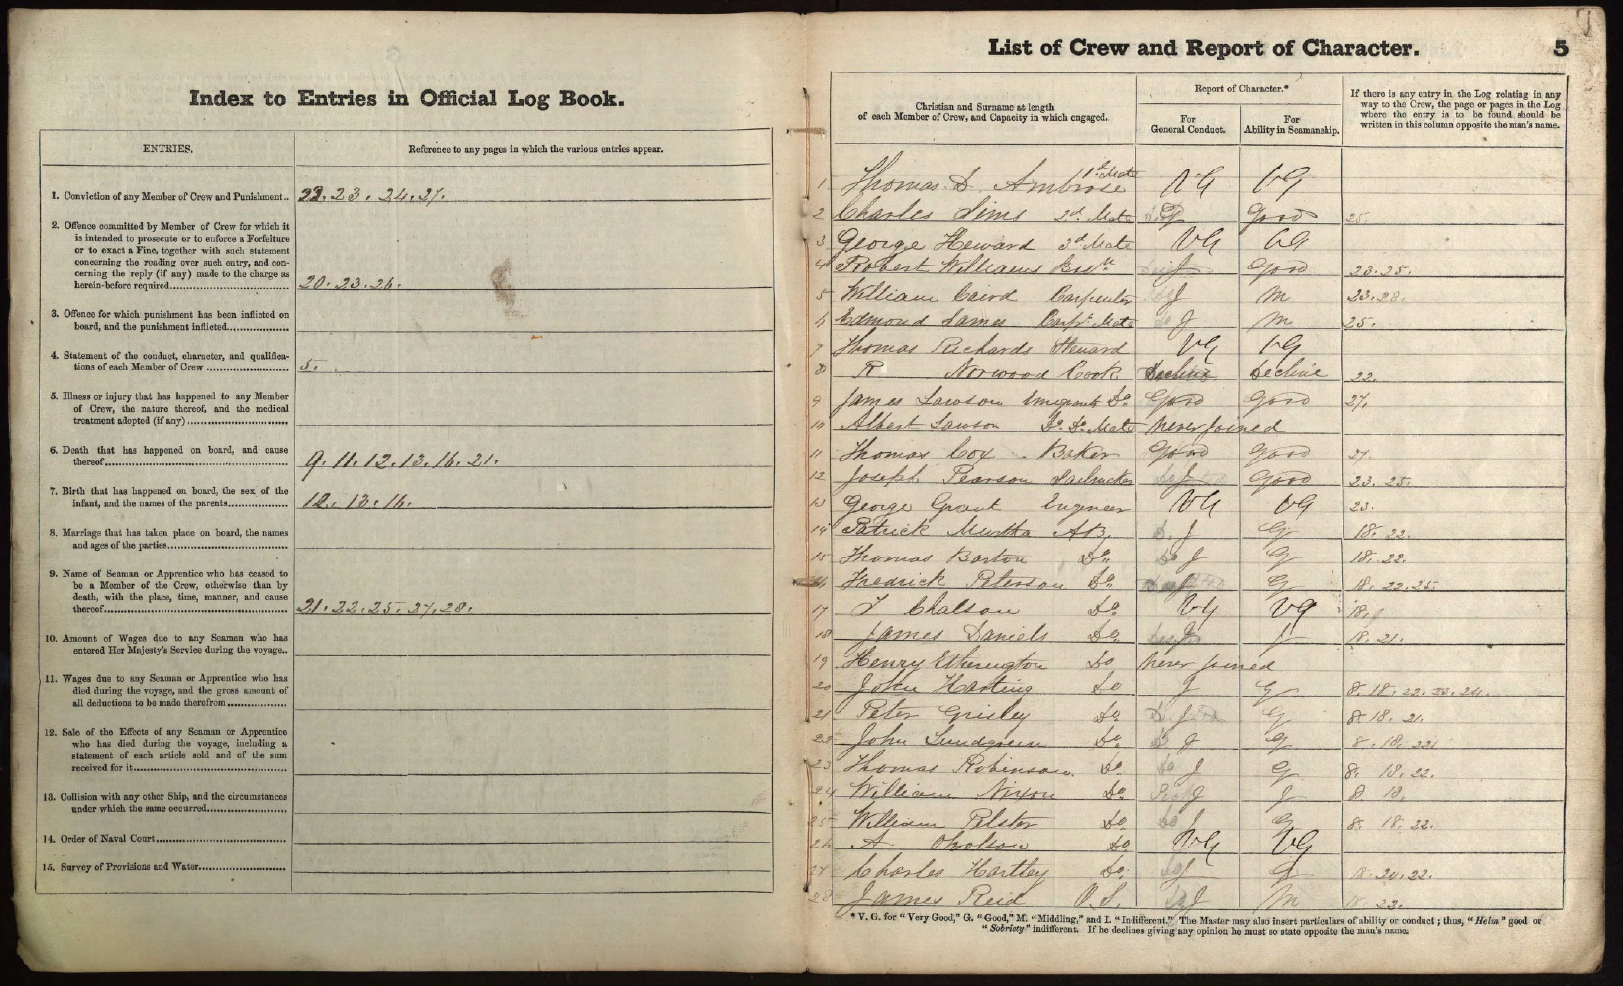 Index to Entries in Official Log Book.
ENTRIES.
Reference to any pages in which the various entries appear.
1. Conviction of any Member of Crew and Punishment..
22. 23. 24. 27.
2. Offence committed by Member of Crew for which it
is intended to prosecute or to enforce a Forfeiture
or to exact a Fine, together with such statement
concerning the reading over such entry, and con-
cerning the reply (if any) made to the charge as
herein-before required
20. 23. 26.
3. Offence for which punishment has been inflicted on
board, and the punishment inflicted
4. Statement of the conduct, character, and qualifica-
tions of each Member of Crew
5.
5. Illness or injury that has happened to any Member
of Crew, the nature thereof, and the medical
treatment adopted (if any)
6. Death that has happened on board, and cause
thereof
9. 11. 12. 13. 16. 21.
7. Birth that has happened on board, the sex of the
infant, and the names of the parents
12. 13. 16.
8. Marriage that has taken place on board, the names
and ages of the parties
9. Name of Seaman or Apprentice who has ceased to
be a Member of the Crew, otherwise than by
death, with the place, time, manner, and cause
thereof
21. 22. 25. 27. 28.
10. Amount of Wages due to any Seaman who has
entered Her Majesty's Service during the voyage..
11. Wages due to any Seaman or Apprentice who has
died during the voyage, and the gross amount of
all deductions to be made therefrom
12. Sale of the Effects of any Seaman or Apprentice
who has died during the voyage, including a
statement of each article sold and of the sum
received for it
13. Collision with any other Ship, and the circumstances
under which the same occurred
14. Order of Naval Court
15. Survey of Provisions and Water
List of Crew and Report of Character. 5
Christian and Surname at length
of each Member of Crew, and Capacity in which engaged.
Report of Character.*
For
General Conduct.
For
Ability in Seamanship.
If there is any entry in the Log relating in any
way to the Crew, the page or pages in the Log
where the entry is to be found should be
written in this column opposite the man's name.
1 Thomas D. Ambrose 1st Mate VG VG
2 Charles Sims 2d. Mate Good 25
3 George Heward 3d Mate VG VG
4 Robert Williams I Good 23. 25.
5 William Caird Carpenter I M 23. 28.
6 Edmond James Carpr. Mate I M 25.
7 Thomas Richards Steward VG VG
8 R Norwood Cook Decline Decline 22.
9 James Lawson Emigrants Do. Good Good 27.
10 Albert Lawson Do. Do. Mate never joined
11 Thomas Cox Baker Good Good 27.
12 Joseph Pearson Sailmaker I Good 23. 25.
13 George Grant Engineer VG VG 23.
14 Patrick Murtha AB. I G 18. 22.
15 Thomas Barton Do. I G 18. 22.
16 Fredrick Peterson Do. I G 18. 22. 25.
17 Do. VG VG 18.
18 James Daniels Do. I I 18. 21.
19 Henry Etherington Do never joined
20 John Harting Do I G 8. 18. 22. 23. 24.
21 Peter Grisley Do. I G 8. 18. 21.
22 John Lundgreen Do. I G 8. 18. 22
23 Thomas Robinson. Do. I G 8. 18. 22.
24 William Nixon Do. I I 8. 18.
25 William Do I G 8. 18. 22.
26 A Do VG VG
27 Charles Hartley Do. I G 8. 20. 22.
28 James Reid O.S. I M 22.
* V. G. for "Very Good," G. "Good," M. "Middling," and I. "Indifferent." The Master may also insert particulars of ability or conduct; thus, "Helm" good or
"Sobriety" indifferent. If he declines giving any opinion he must so state opposite the man's name.